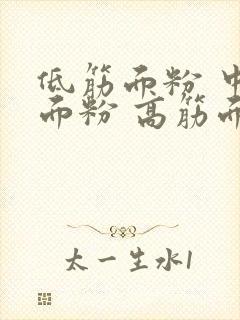 低筋面粉 中
面粉 高筋面
太一生水1